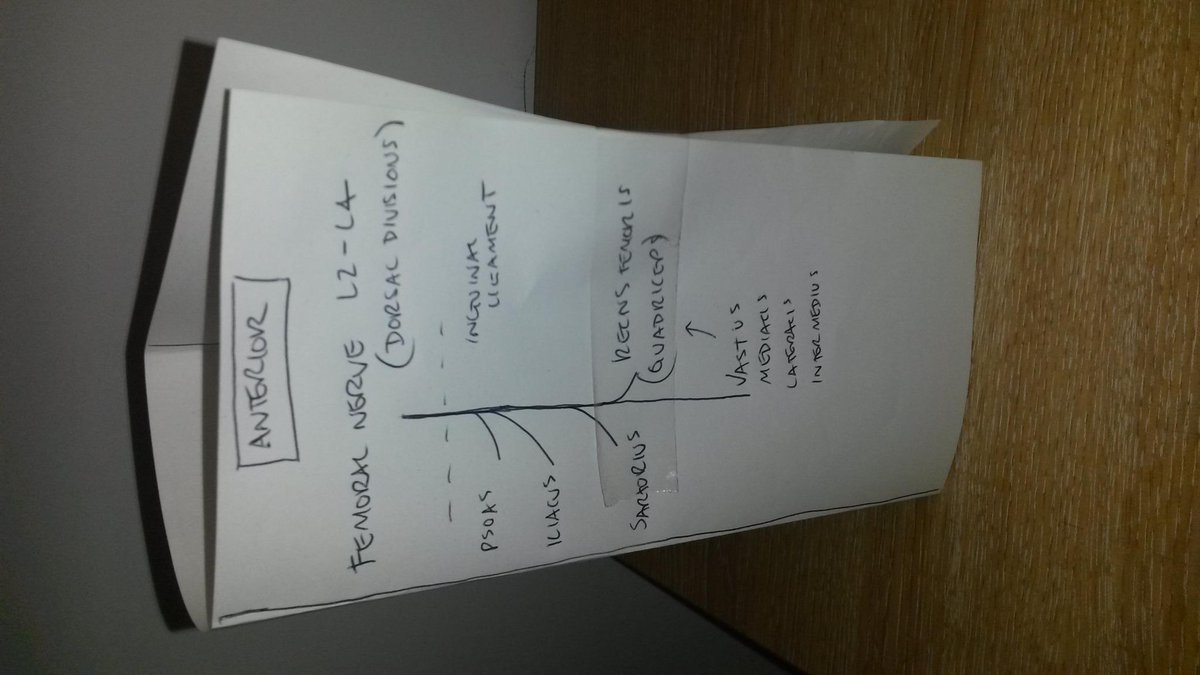 ANTERIOR
FEMORAL NERVE L2-L4
(DORSAL DIVISIONS)
INGUINAL
LIGAMENT
PSOAS
ILIACUS
SARTORIUS
RECTUS FEMORIS
(QUADRICEP)
VASTUS
MEDIALIS
LATERALIS
INTERMEDIUS